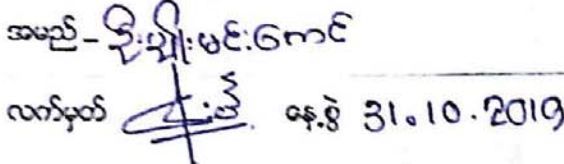 အမည် - ဦးမျိုးမင်းကောင်
လက်မှတ် နေ့စွဲ 31.10.2019